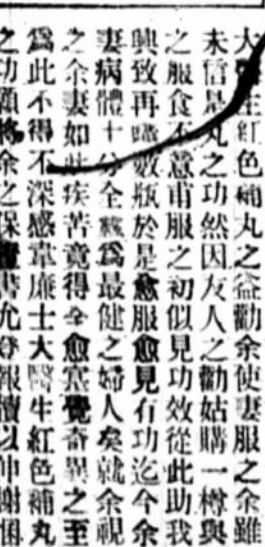 大醫生紅色補丸之益勸余使妻服之余雖
未信是丸之功然因友人之勸姑購一樽與
之服食不意甫服之初似見功效從此助我
興致再購數瓶於是愈服愈見有功迄今余
妻病體十分全愈為最健之婦人矣就余視
之余妻如此疾苦竟得全愈寔覺奇異之至
為此不得不深感韋廉士大醫生紅色補丸
之功願將余之保證書允登報牘以伸謝悃